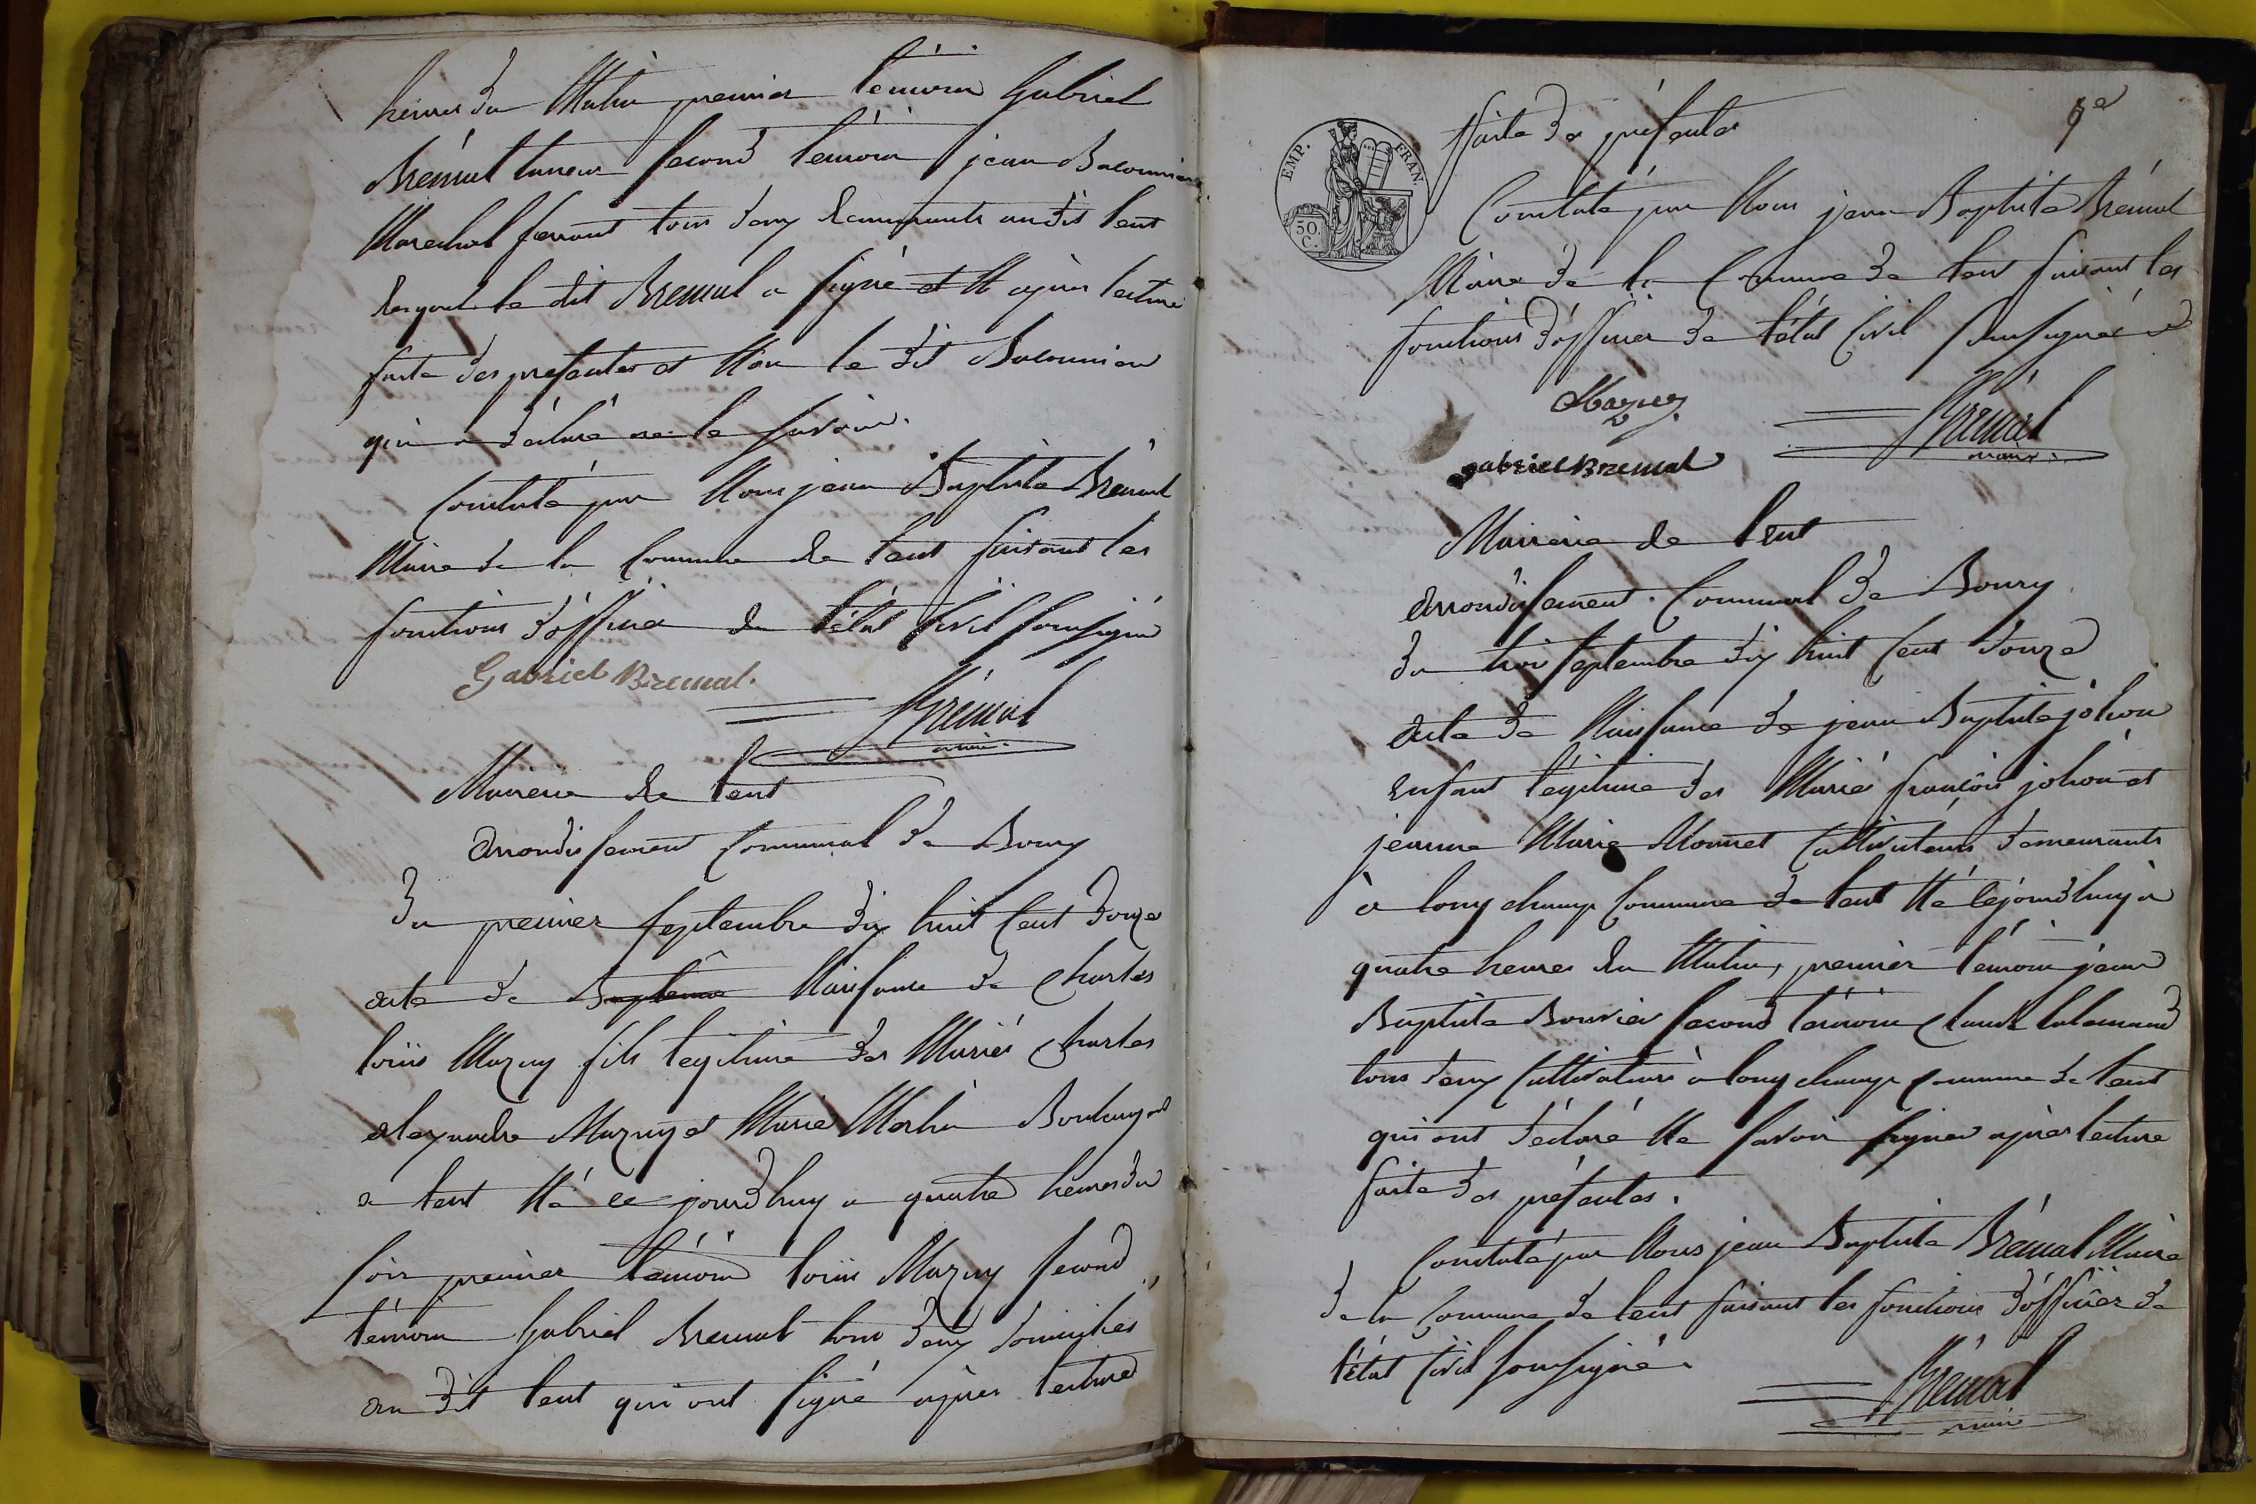 heures du Matin premier témoin Gabriel
Brémal tuneur second témoin jean Baconnier
Marechal ferrant tous deux demeurants audit Lent
lesquels le dit Bremal a signé et N après lecture
faite des presentes et Non le dit Baconnier
qui a déclaré ne le savoir.
Constaté par Nous jean Baptiste Brémal
Maire de la Commune de Lent faisant les
fonctions d'officier de l'état Civil soussigné
Gabriel Bremal.
Brémal
maire.
Mairerie de Lent
Arrondissement Communal de Bourg
Du premier septembre dix huit Cent douze
acte de Baptême Naissance de Charles
louis Mazuy fils legitime des Mariés Charles
alexandre Mazuy et Marie Merlin Boulanger
a Lent Né ce jourdhuy a quatre heures du
soir premier témoin louis Mazuy second
témoin Gabriel Bremal tous deux domiciliés
au dit Lent qui ont signé après lecture
9e
EMP. FRAN.
50. C.
faite des présentes
Constaté par Nous jean Baptiste Brémal
Maire de la Commune de Lent faisant les
fonctions d'officier de l'état Civil soussigné
Mazuy
Brémal
maire.
gabriel Bremal
Mairerie de Lent
Arrondissement. Communal de Bourg
du trois septembre dix huit Cent douze
acte de Naissance de jean Baptiste johon
enfant légitime des Mariés françois johon et
jeanne Marie Monnet Cultivateurs demeurants
à long champ Commune de Lent Né cejourdhuy à
quatre heures du Matin, premier témoin jean
Baptiste Bouvier second témoin Claude lalemand
tous deux Cultivateurs a long champ commune de Lent
qui ont déclaré Ne savoir signer après lecture
faite des présentes.
Constaté par Nous jean Baptiste Brémal Maire
de la Commune de Lent faisant les fonctions d'officier de
l'état Civil soussigné.
Brémal
maire